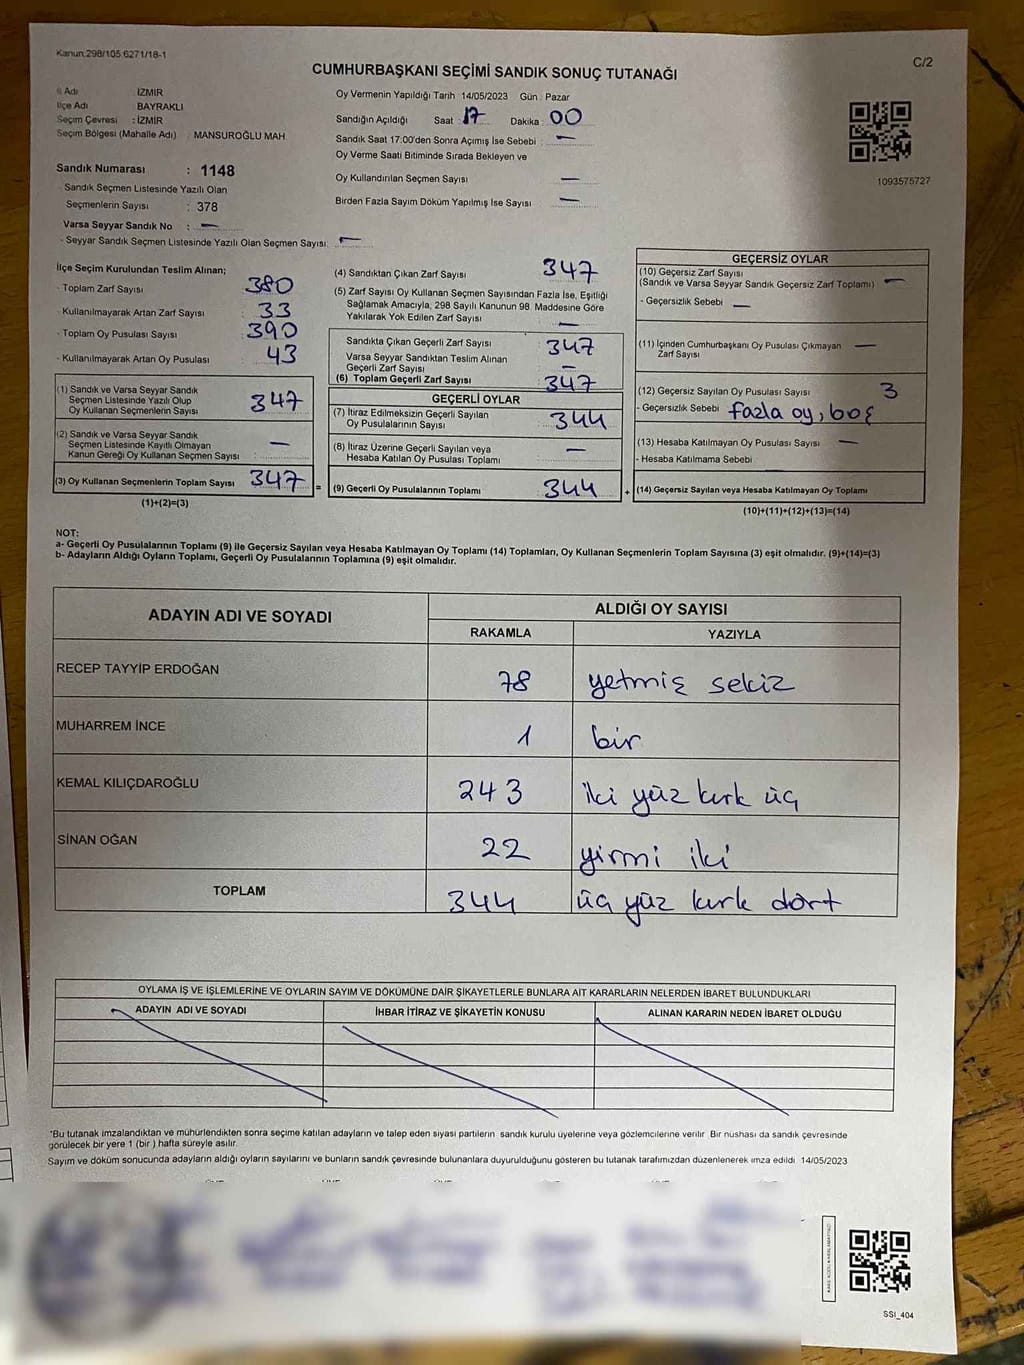 Kanun 298/105 6271/18-1
C/2
CUMHURBAŞKANI SEÇİMİ SANDIK SONUÇ TUTANAĞI
İl Adı İZMİR
İlçe Adı BAYRAKLI
Seçim Çevresi : İZMİR
Seçim Bölgesi (Mahalle Adı) : MANSUROĞLU MAH
Sandık Numarası : 1148
- Sandık Seçmen Listesinde Yazılı Olan
Seçmenlerin Sayısı : 378
Varsa Seyyar Sandık No : —
- Seyyar Sandık Seçmen Listesinde Yazılı Olan Seçmen Sayısı: —
Oy Vermenin Yapıldığı Tarih : 14/05/2023 Gün : Pazar
Sandığın Açıldığı Saat : 17 Dakika : 00
Sandık Saat 17:00'den Sonra Açımış İse Sebebi : —
Oy Verme Saati Bitiminde Sırada Bekleyen ve
Oy Kullandırılan Seçmen Sayısı —
Birden Fazla Sayım Döküm Yapılmış İse Sayısı : —
1093575727
İlçe Seçim Kurulundan Teslim Alınan;
- Toplam Zarf Sayısı 380
- Kullanılmayarak Artan Zarf Sayısı 33
- Toplam Oy Pusulası Sayısı 390
- Kullanılmayarak Artan Oy Pusulası 43
(1) Sandık ve Varsa Seyyar Sandık
Seçmen Listesinde Yazılı Olup
Oy Kullanan Seçmenlerin Sayısı 347
(2) Sandık ve Varsa Seyyar Sandık
Seçmen Listesinde Kayıtlı Olmayan
Kanun Gereği Oy Kullanan Seçmen Sayısı : —
(3) Oy Kullanan Seçmenlerin Toplam Sayısı 347 =
(1)+(2)=(3)
(4) Sandıktan Çıkan Zarf Sayısı 347
(5) Zarf Sayısı Oy Kullanan Seçmen Sayısından Fazla İse, Eşitliği
Sağlamak Amacıyla, 298 Sayılı Kanunun 98. Maddesine Göre
Yakılarak Yok Edilen Zarf Sayısı —
Sandıkta Çıkan Geçerli Zarf Sayısı 347
Varsa Seyyar Sandıktan Teslim Alınan
Geçerli Zarf Sayısı —
(6) Toplam Geçerli Zarf Sayısı 347
GEÇERLİ OYLAR
(7) İtiraz Edilmeksizin Geçerli Sayılan
Oy Pusulalarının Sayısı 344
(8) İtiraz Üzerine Geçerli Sayılan veya
Hesaba Katılan Oy Pusulası Toplamı —
(9) Geçerli Oy Pusulalarının Toplamı 344 +
GEÇERSİZ OYLAR
(10) Geçersiz Zarf Sayısı
(Sandık ve Varsa Seyyar Sandık Geçersiz Zarf Toplamı) —
- Geçersizlik Sebebi —
(11) İçinden Cumhurbaşkanı Oy Pusulası Çıkmayan —
Zarf Sayısı
(12) Geçersiz Sayılan Oy Pusulası Sayısı 3
- Geçersizlik Sebebi fazla oy, boş
(13) Hesaba Katılmayan Oy Pusulası Sayısı —
- Hesaba Katılmama Sebebi
(14) Geçersiz Sayılan veya Hesaba Katılmayan Oy Toplamı
(10)+(11)+(12)+(13)=(14)
NOT:
a- Geçerli Oy Pusulalarının Toplamı (9) ile Geçersiz Sayılan veya Hesaba Katılmayan Oy Toplamı (14) Toplamları, Oy Kullanan Seçmenlerin Toplam Sayısına (3) eşit olmalıdır. (9)+(14)=(3)
b- Adayların Aldığı Oyların Toplamı, Geçerli Oy Pusulalarının Toplamına (9) eşit olmalıdır.
ADAYIN ADI VE SOYADI
ALDIĞI OY SAYISI
RAKAMLA YAZIYLA
RECEP TAYYİP ERDOĞAN 78 yetmiş sekiz
MUHARREM İNCE 1 bir
KEMAL KILIÇDAROĞLU 243 iki yüz kırk üç
SİNAN OĞAN 22 yirmi iki
TOPLAM 344 üç yüz kırk dört
OYLAMA İŞ VE İŞLEMLERİNE VE OYLARIN SAYIM VE DÖKÜMÜNE DAİR ŞİKAYETLERLE BUNLARA AİT KARARLARIN NELERDEN İBARET BULUNDUKLARI
ADAYIN ADI VE SOYADI İHBAR İTİRAZ VE ŞİKAYETİN KONUSU ALINAN KARARIN NEDEN İBARET OLDUĞU
*Bu tutanak imzalandıktan ve mühürlendikten sonra seçime katılan adayların ve talep eden siyasi partilerin sandık kurulu üyelerine veya gözlemcilerine verilir Bir nüshası da sandık çevresinde
görülecek bir yere 1 (bir ) hafta süreyle asılır.
Sayım ve döküm sonucunda adayların aldığı oyların sayılarını ve bunların sandık çevresinde bulunanlara duyurulduğunu gösteren bu tutanak tarafımızdan düzenlenerek imza edildi 14/05/2023
SSI_404